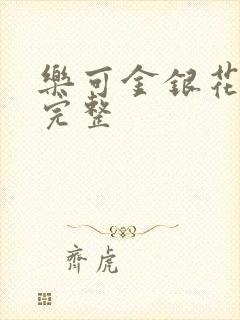 樂可金銀花
完整
齊虎